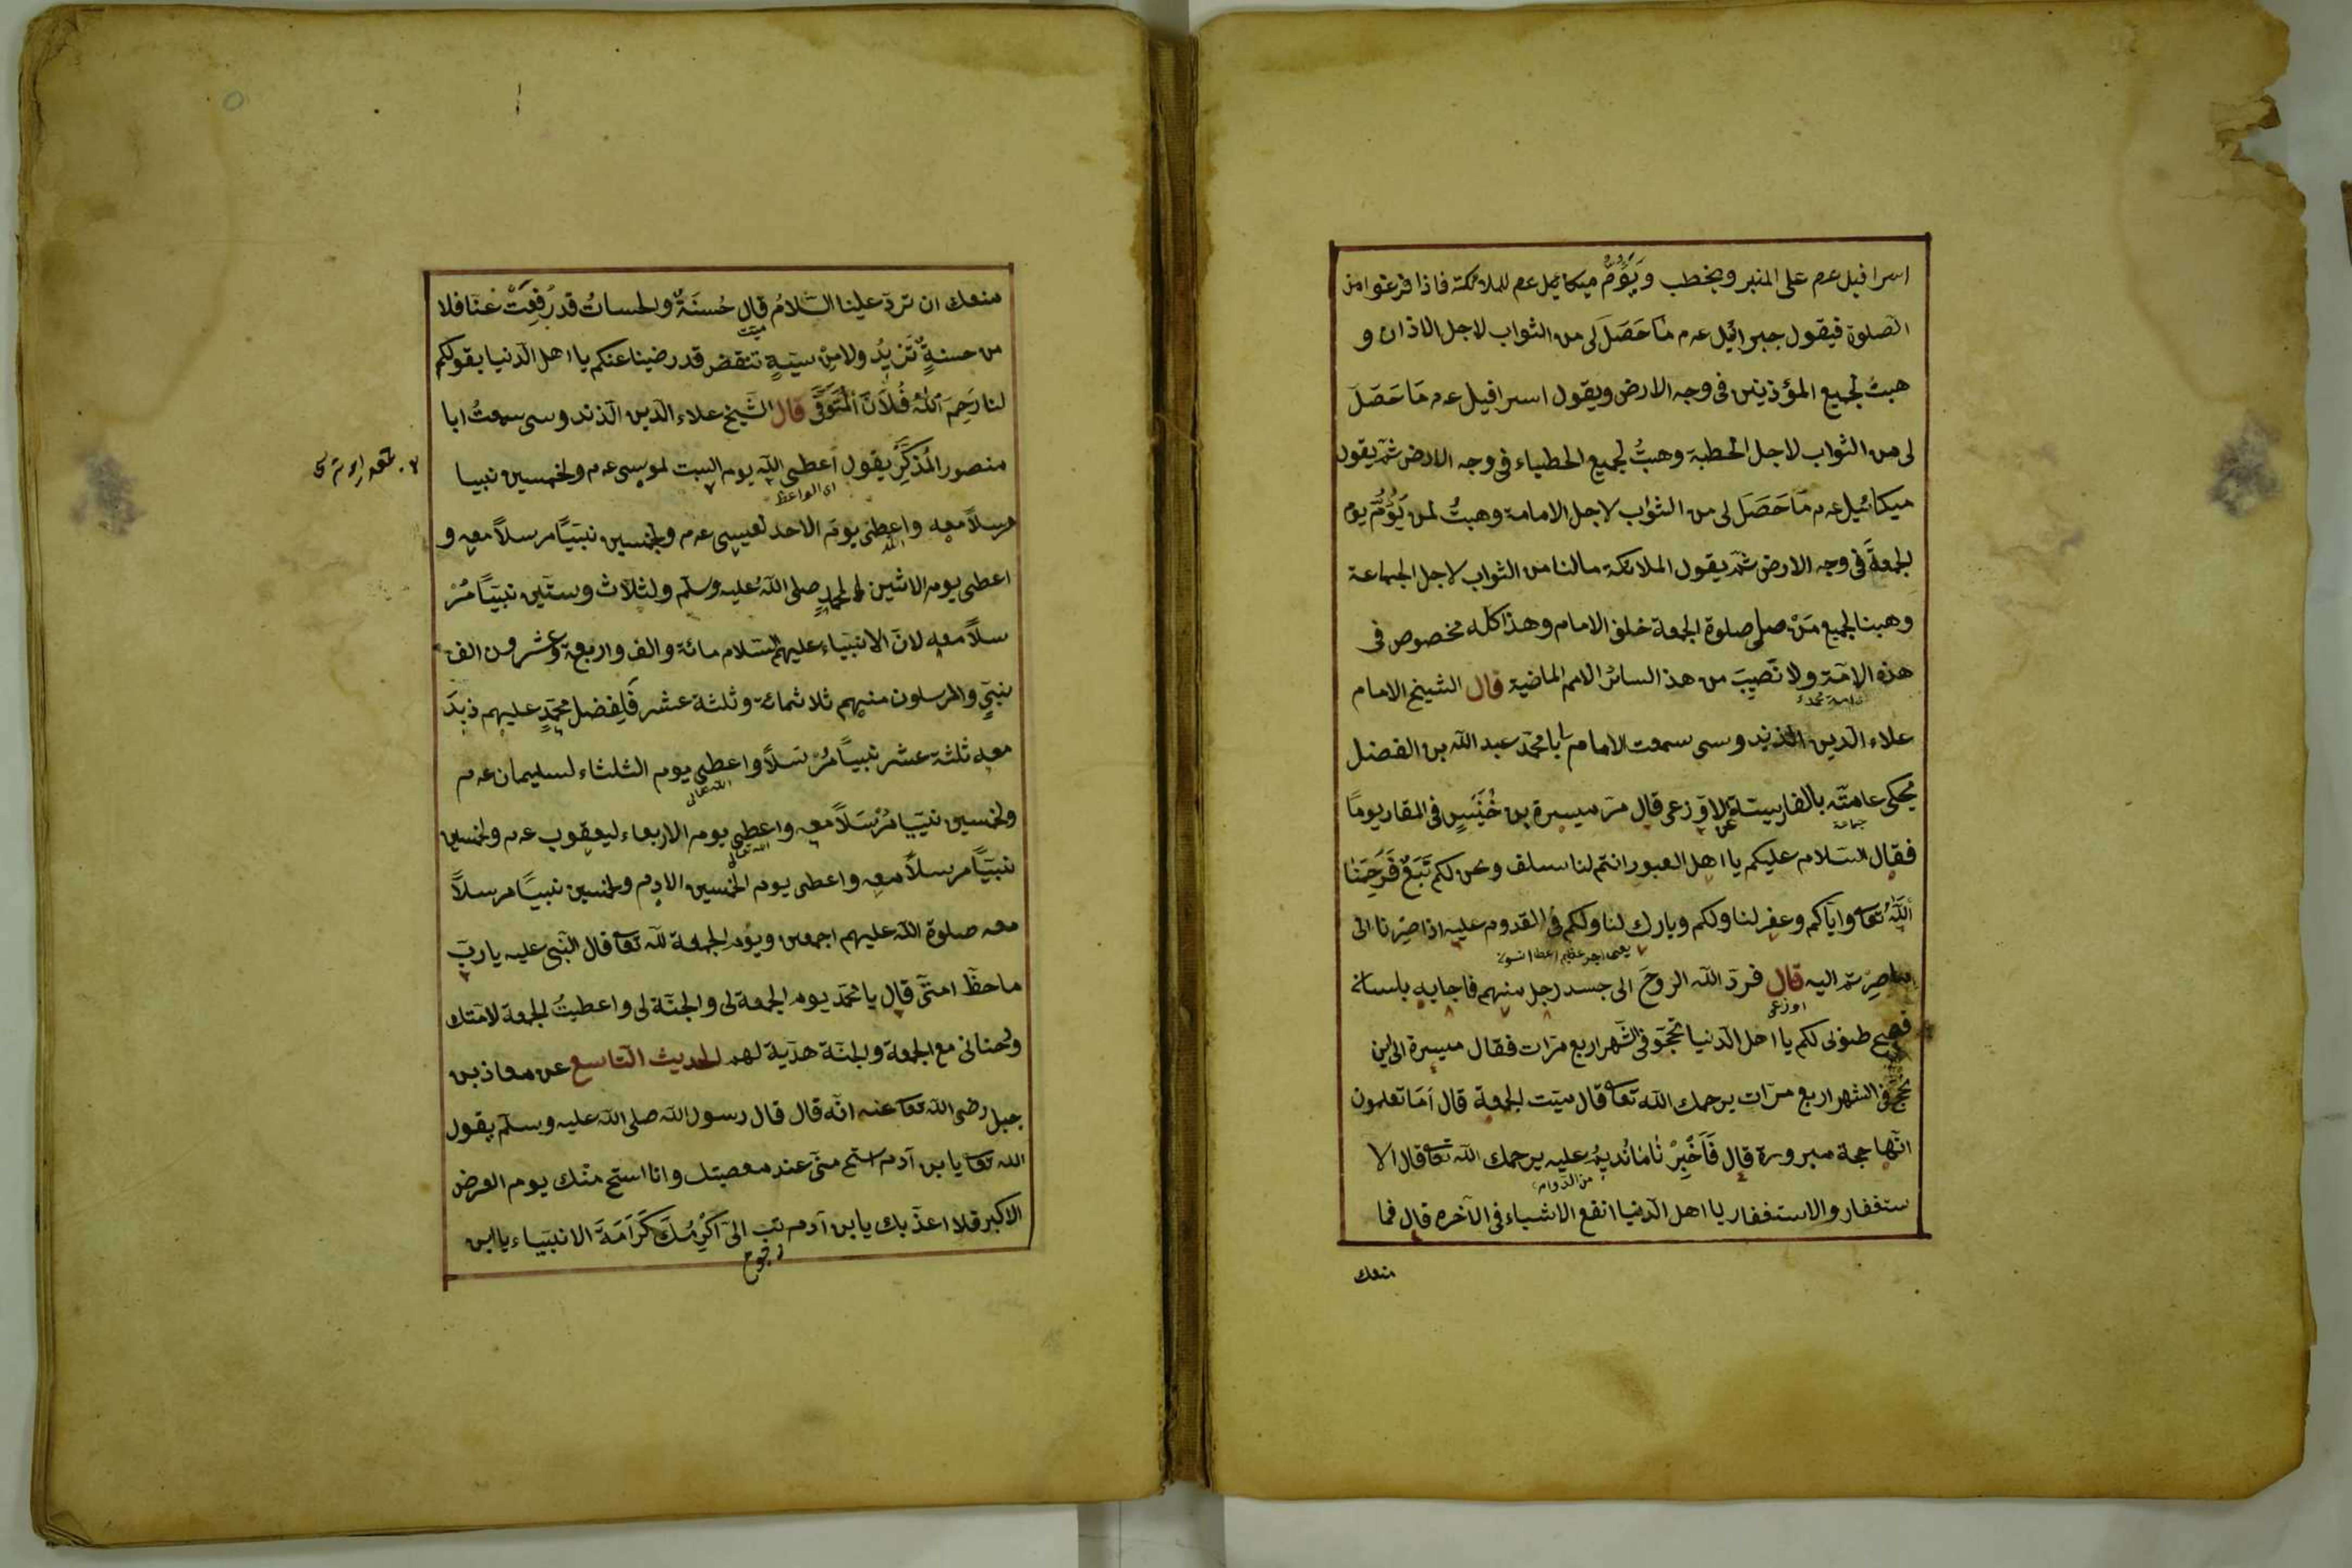 اسرافيل عم على المنبر ويخطب ويَؤُمُّ ميكائيل عم للملائكة فاذا فرغوا من
الصلوة فيقول جبرائيل عدم مَا حَصَلَ لى من الثواب لاجل الاذان و
هبتُ لجميع المؤذنين فى وجه الارض ويقول اسرافيل عدم مَا حَصَلَ
لى من الثواب لاجل الخطبة وهبتُ لجميع الخطباء فى وجه الارض ثم يقول
ميكائيل عدم مَا حَصَلَ لى من الثواب لاجل الامامة وهبتُ لمن يَؤُمُّ يوم
الجمعةَ فى وجه الارض ثم يقول الملائكة مالنا من الثواب لاجل الجماعة
وهبنا لجميع مَنْ صلى صلوة الجمعة خلف الامام وهذا كله مخصوص فى
هذه الامّة ولا نَصيبَ من هذا لسائر الامم الماضية قال الشيخ الامام
امة محمد
علاء الدين الزندوسى سمعت الامام ابا محمّد عبد الله بن الفضل
يحكى عامّته بالفارسيّة عن الاوزعى قال مرّ ميسرة بن خُنَيْسٍ فى المقابر يومًا
جماعة
فقال السّلام عليكم يا اهل القبور انتم لنا سلف ونحن لكم تَبَعٌ فَرَحِمَنَا
اللّٰهُ تعا وايّاكم وغفر لنا ولكم وبارك لنا ولكم فى القدوم عليه اذا صِرْنا الى
ما صِرْتم اليه قال فردّ الله الروحَ الى جسد رجل منهم فاجابه بلسان
اوزعى
فصيح طوبى لكم يا اهل الدّنيا تحجّو فى الشّهر اربع مرّات فقال ميسرة الى اين
نحج فى الشهر اربع مرّات يرحمك الله تعا قال ميّت الجمعة قال اَمَا تعلمون
انّها حجة مبرورة قال فَاَخْبِرْنَا مَا تُديمُ عليه يرحمك الله تعا قال الا
من الدّوام
ستغفار والاستغفار يا اهل الدّنيا انفع الاشياء فى الآخرة قال فما
منعك
منعك ان تردّ علينا السّلامُ قال حُسنَةٌ والحسناتُ قد رُفِعَتْ عنّا فلا
ميّت
من حسنةٍ تَزيدُ ولا مِنْ سيّةٍ تنقض قد رضينا عنكم يا اهل الدّنيا بقولكم
لنا رَحِمَ اللّٰهُ فُلَانَ المُتَوَفَّى قال الشّيخ علاء الدّين الزندوسى سمعتُ ابا
منصور المُذَكِّرَ يقول اعطى اللّه يوم السبت لموسى عدم ولخمسين نبيا
اى الواعظ
مرسلاً معه واعطى يومَ الاحد لعيسى عدم ولخمسين نبيّاً مرسلاً معه و
الله
اعطى يوم الاثنين لمحمدٍ صلى اللّه عليه وسلّم ولثلاث وستّين نبيّاً مُرْ
سلاً معه لانّ الانبياء عليهم السّلام مائة والف واربعة وعشرون الف
نبىّ والمرسلون منهم ثلاثمائة وثلثة عشر فَلِفضل محمّدٍ عليهم زيدَ
معه ثلثة عشر نبيّاً مُرْسَلاً واعطى يوم الثلثاء لسليمان عدم
الله تعالى
ولخمسين نبيّاً مُرْسَلاً معه واعطى يوم الاربعاء ليعقوب عدم ولخمسين
الله تعالى
نبيّاً مرسلاً معه واعطى يوم الخمسين لادم ولخمسين نبيّاً مرسلاً
معه صلوة اللّه عليهم اجمعين ويوم الجمعة للّه تعا قال النّبى عليه يا ربّ
ما حظّ امتى قال يا محمّد يوم الجمعة لى والجنّة لى واعطيتُ الجمعة لامّتك
ورضائى مع الجمعة والجنّة هديّة لهم الحديث التّاسع عن معاذ بن
جبل رضى اللّه تعا عنه انّه قال قال رسول اللّه صلى اللّه عليه وسلّم يقول
اللّه تعا يا بن آدم استح منّى عند معصيتك وانا استح منك يوم العرض
الاكبر فلا اعذّبك يا بن آدم تب الىّ اُكْرِمُكَ كَرَامَةَ الانبياء يا ابن